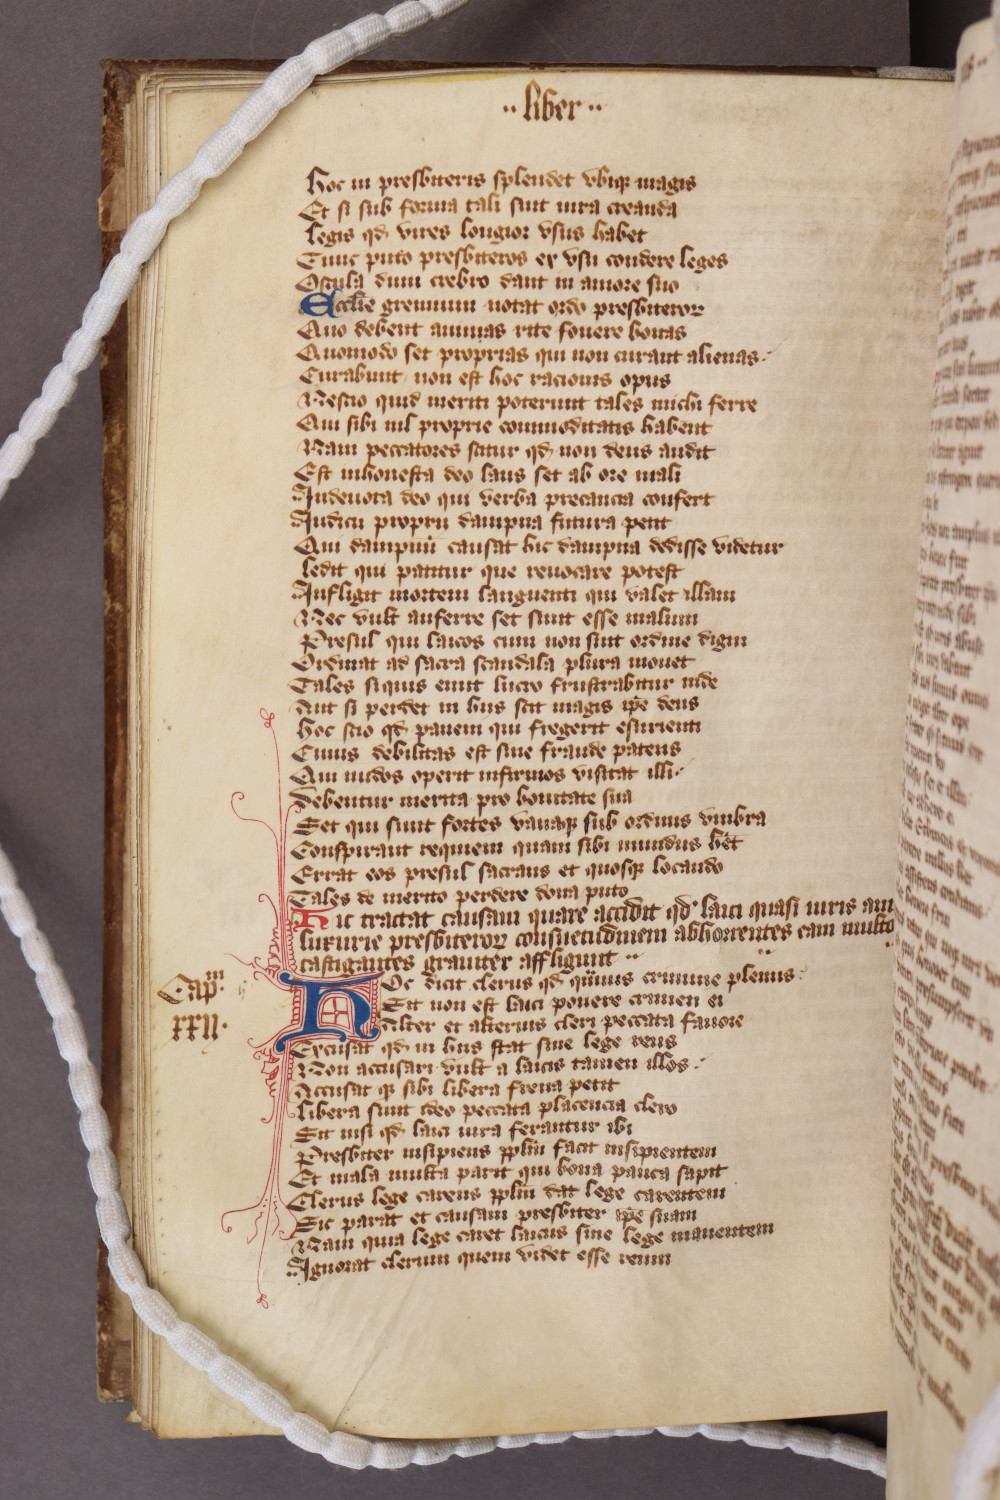 ·· liber ··
Hoc in presbiteris splendet vbiqꝫ magis
Et si sub forma tali sint iura creanda
Legis qd vires longior vsus habet
Tunc puto presbiteros ex vsu condere leges
Oscula dum crebro dant in amore suo
Ecclie gremium notat ordo presbiteroꝝ
Quo debent animas rite fouere bonas
Quomodo set proprias qui non curant alienas
Curabunt non est hoc racionis opus
Nescio quid meriti poterunt tales michi ferre
Qui sibi nil proprie commoditatis habent
Nam peccatores scitur qd non deus audit
Est inhonesta deo laus set ab ore mali
Indeuota deo qui verba precancia confert
Iudicii proprii dampna futura petit
Qui dampnū causat hic dampna dedisse videtur
Ledit qui patitur que reuocare potest
Infligit mortem languenti qui valet illam
Nec vult auferre set sinit esse malum
Presul qui laicos cum non sint ordine digni
Ordinat ad sacra scandala plura mouet
Tales siquis emit lucro frustrabitur inde
Aut si perdet in hiis scit magis ipe deus
Hoc scio qd panem qui fregerit esurienti
Cuius debilitas est sine fraude patens
Qui nudos operit infirmos visitat illi
Debentur merita pro bonitate sua
Set qui sunt fortes vanaqꝫ sub ordinis vmbra
Conspirant requiem quam sibi mundus hēt
Errat eos presul sacrans et quosqꝫ locando
Tales de merito perdere dona puto
Hic tractat causam quare accidit qd laici quasi iuris
luxurie presbiteroꝝ consuetudinem abhorrentes eam
castigantes grauiter affligunt ··
Capᵐ
XXII·
Hoc dicit clerus qd quiuis crimine plenus
Sit non est laici ponere crimen ei
Aliter et alterius cleri peccata fauore
Excusat qd in hiis stat sine lege reus
Non accusari vult a laicis tamen illos
Accusat qꝫ sibi libera frena petit
Libera sunt ideo peccata placencia clero
Sit nisi qd laici iura ferantur ibi
Presbiter insipiens pplm facit insipientem
Et mala multa parit qui bona pauca sapit
Clerus lege carens pplm dat lege carentem
Sic parat et causam presbiter ipe suam
Nam quia lege caret laicus sine lege manentem
Ignorat clerum quem videt esse reum